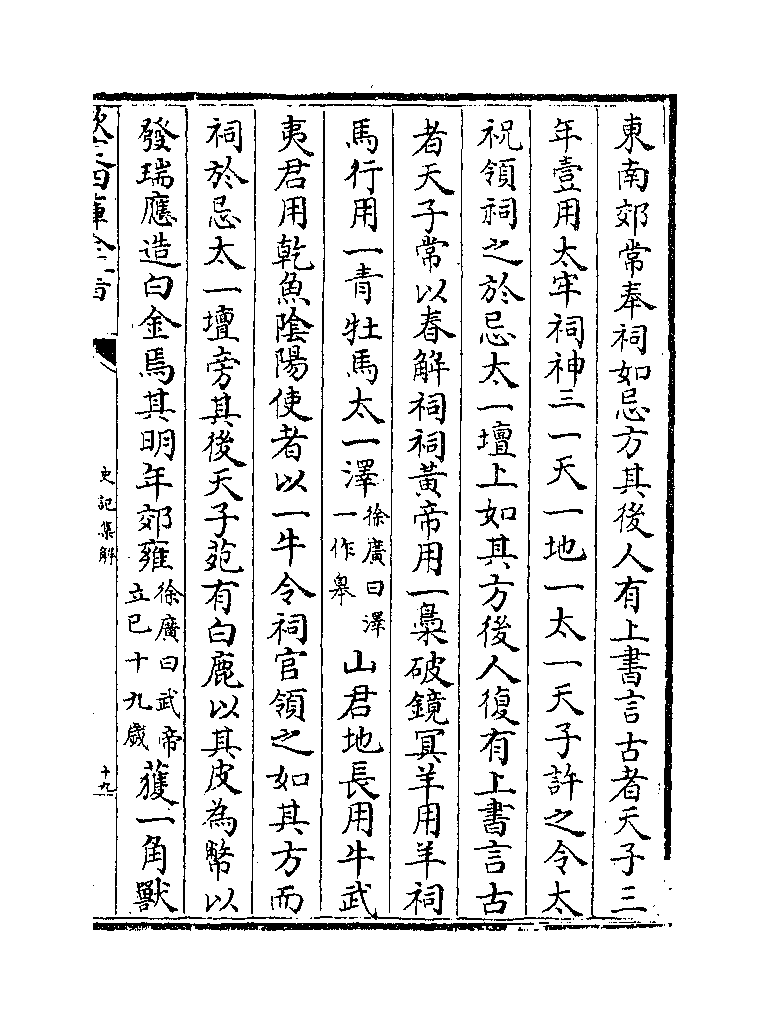 東南郊常奉祠如忌方其後人有上書言古者天子三
年壹用太牢祠神三一天一地一太一天子許之令太
祝領祠之於忌太一壇上如其方後人復有上書言古
者天子常以春解祠祠黃帝用一梟破鏡冥羊用羊祠
馬行用一青牡馬太一澤徐廣曰澤一作皋山君地長用牛武
夷君用乾魚陰陽使者以一牛令祠官領之如其方而
祠於忌太一壇旁其後天子苑有白鹿以其皮為幣以
發瑞應造白金焉其明年郊雍徐廣曰武帝立巳十九歲獲一角獸
欽定四庫全書
史記集解
十九